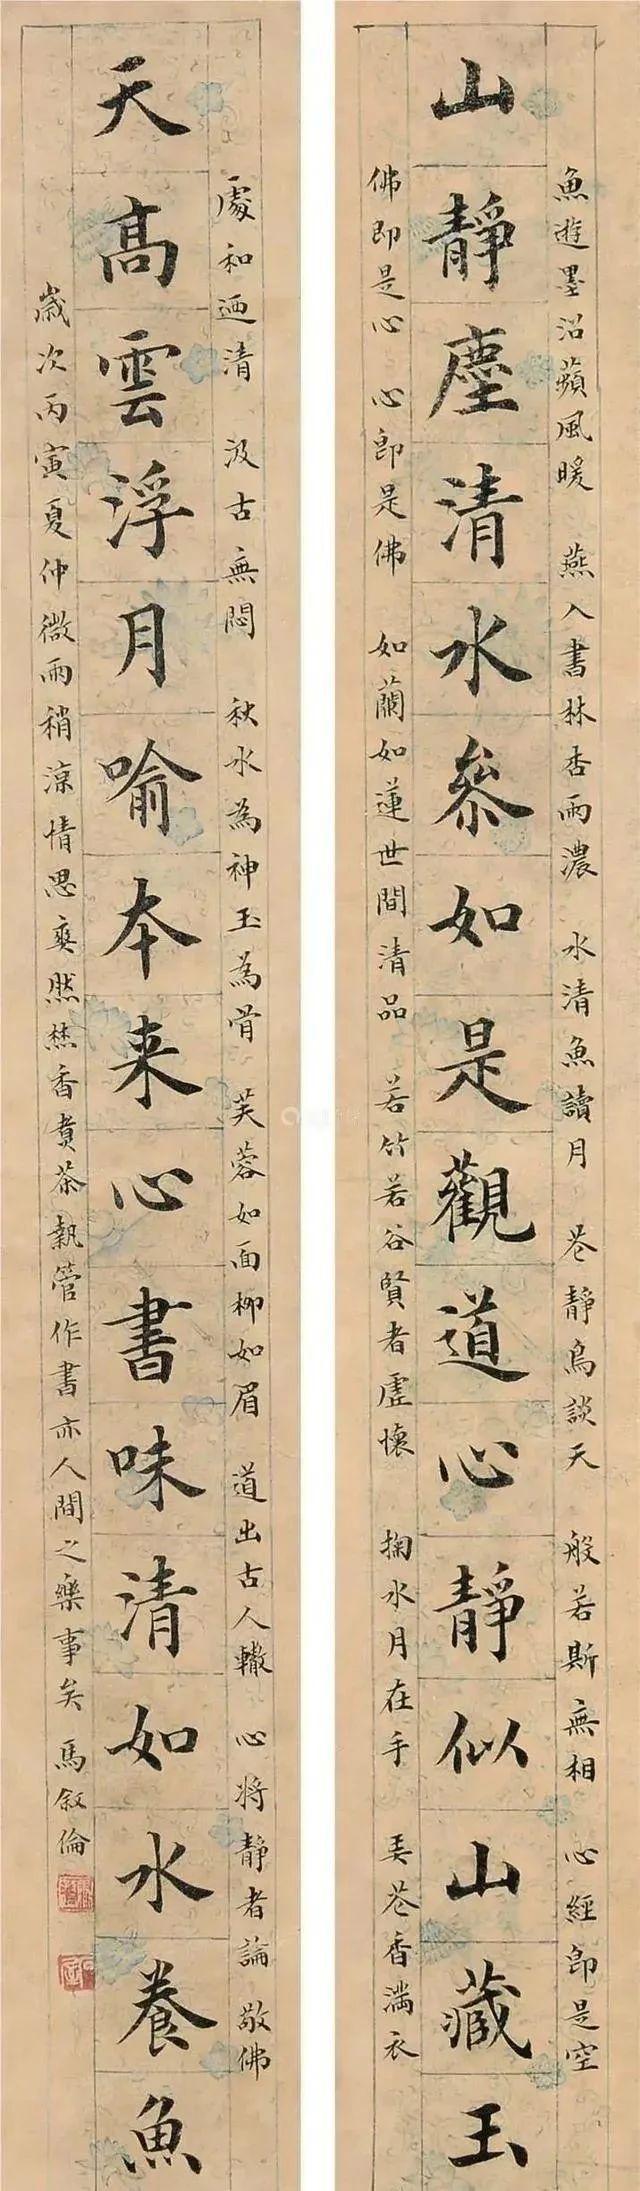 魚遊墨沼蘋風暖 燕入書林杏雨濃 水清魚讀月 花靜鳥談天 般若斯無相 心經即是空
山靜塵清水參如是觀道心靜似山藏玉
佛即是心 心即是佛 如蘭如蓮世間清品 若竹若谷賢者虛懷 掬水月在手 弄花香滿衣
處和迺清 汲古無悶 秋水為神玉為骨 芙蓉如面柳如眉 道出古人轍 心將靜者論 敬佛
天高雲浮月喻本来心書味清如水養魚
歲次丙寅夏仲微雨稍涼情思爽然焚香煮茶執管作書亦人間之樂事矣 馬叙倫